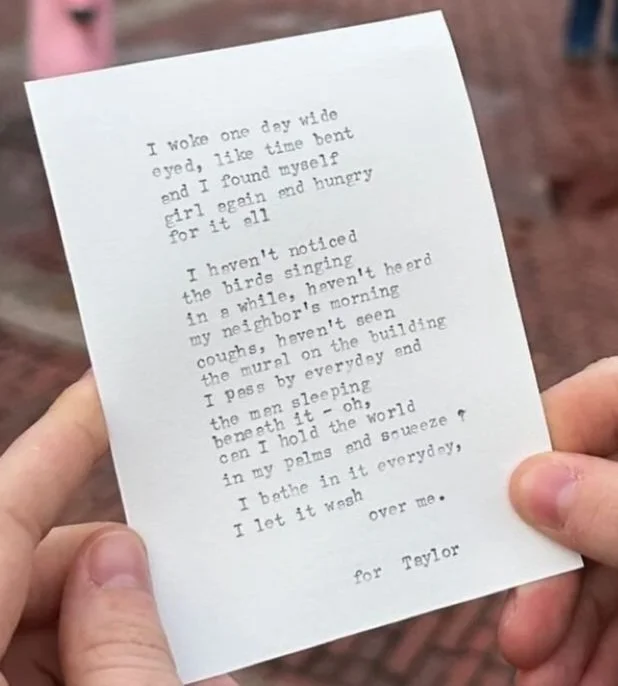 I woke one day wide
eyed, like time bent
and I found myself
girl again and hungry
for it all
I haven't noticed
the birds singing
in a while, haven't heard
my neighbor's morning
coughs, haven't seen
the mural on the building
I pass by everyday and
the man sleeping
beneath it - oh,
can I hold the world
in my palms and squeeze ?
I bathe in it everyday,
I let it wash
over me.
for Taylor